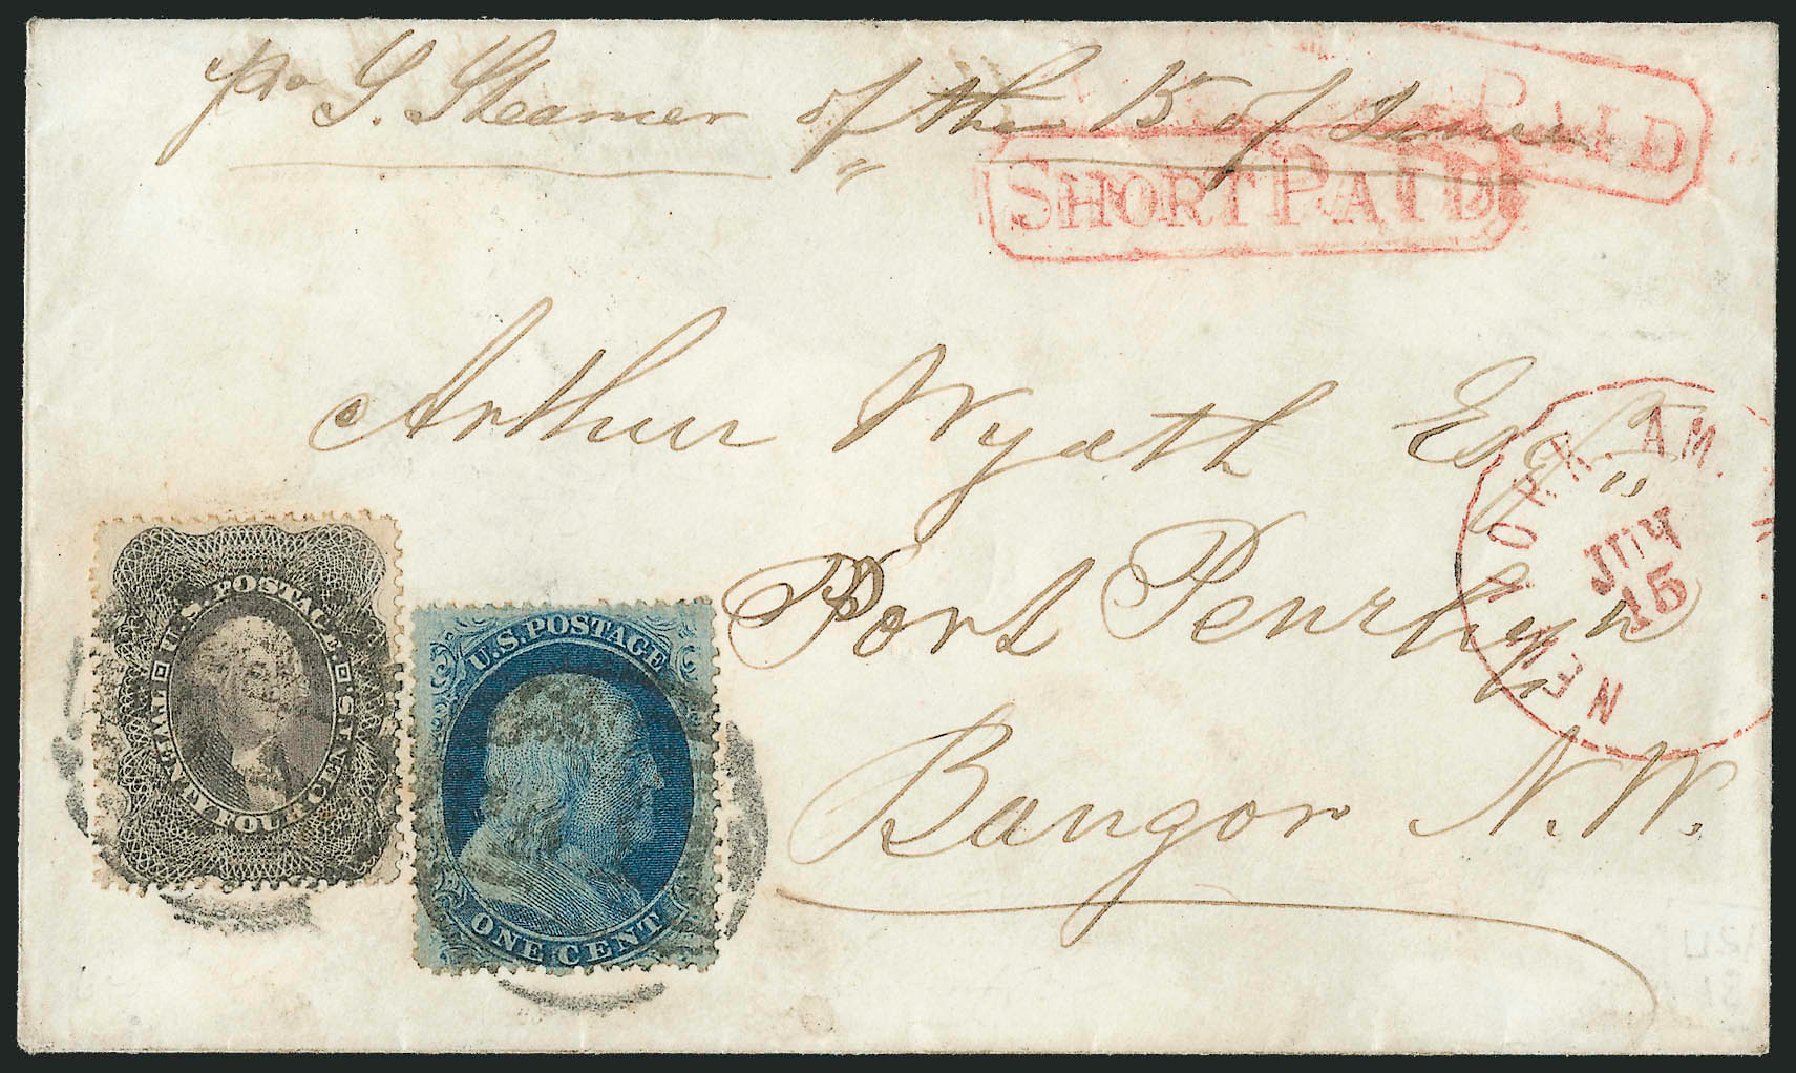 pr S. Steamer of the 15 of June
PAID
SHORT PAID
Arthur Wyatt Esqr
NEW YORK AM.
JUN
15
Port Penrhyn
Bangor N.W.
U.S. POSTAGE.
TWENTY FOUR CENTS.
U.S. POSTAGE
ONE CENT